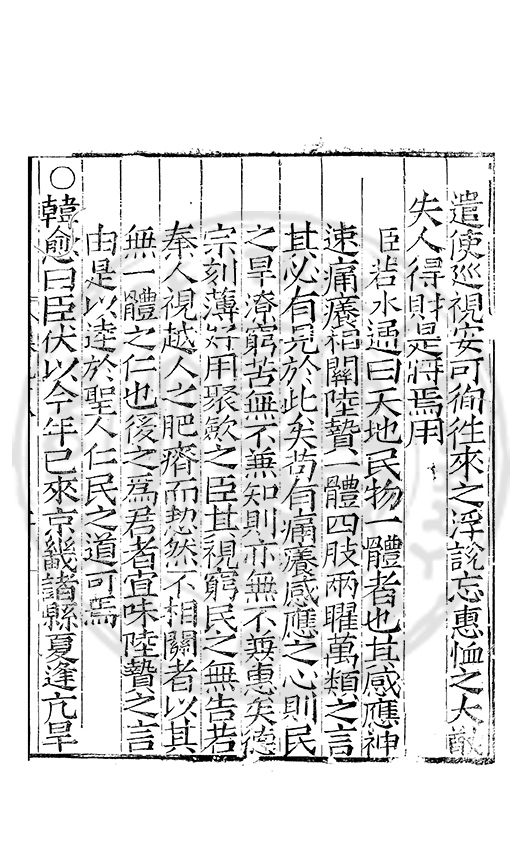 遣使巡視安可徇往來之浮說忘惠恤之大猷
失人得財是將焉用
臣若水通曰天地民物一體者也其感應神
速痛癢相關陸贄一體四肢兩曜萬類之言
其必有見於此矣苟有痛癢感應之心則民
之旱潦窮苦無不兼知則亦無不兼惠矣德
宗刻薄好用聚歛之臣其視窮民之無告若
秦人視越人之肥瘠而恝然不相關者以其
無一體之仁也後之爲君者宜味陸贄之言
由是以逹於聖人仁民之道可焉
○韓愈曰臣伏以今年已來京畿諸縣夏逢亢旱